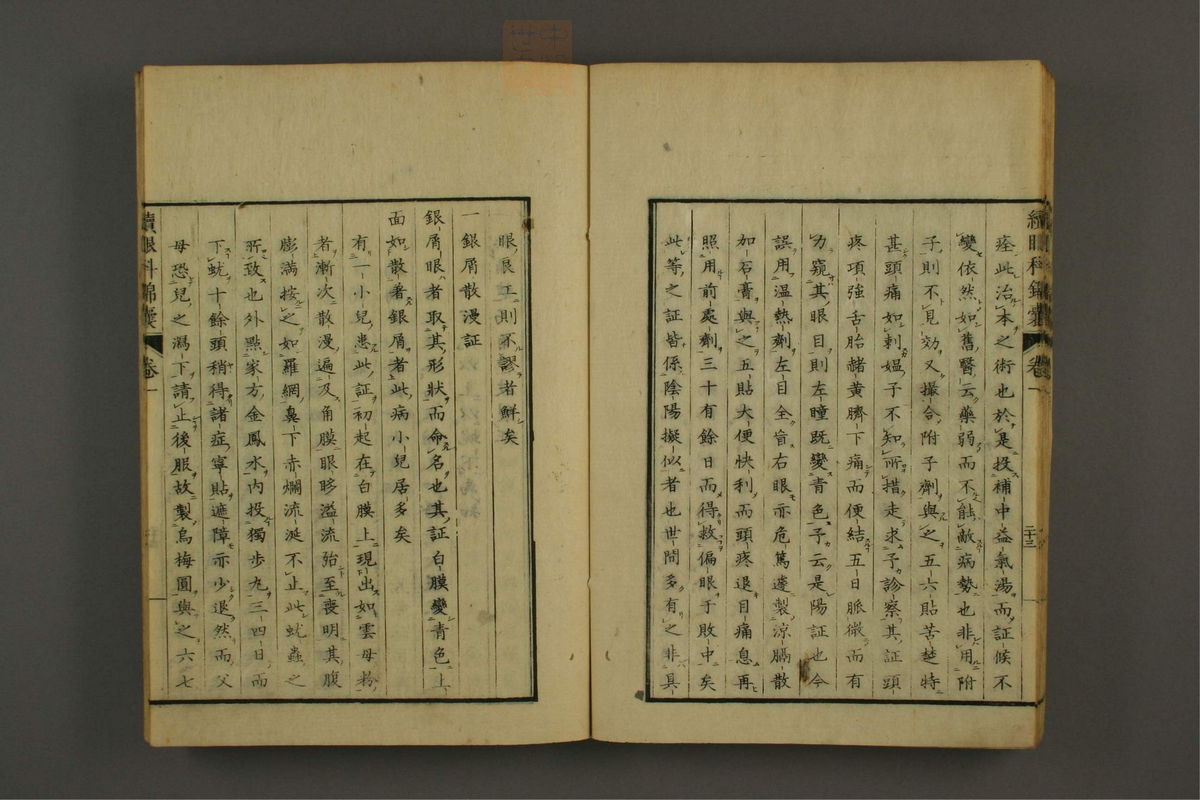 痊此治本之術也於是投補中益氣湯而証候不
變依然如舊醫云藥弱而不能敵病勢也非用附
子則不見効又撮合附子劑與之五六貼苦楚特
甚頭痛如刺媼子不知所措走求予診察其証頭
疼項強舌胎赭黄臍下痛而便結五日脈微而有
力窺其眼目則左瞳既變青色予云是陽証也今
誤用温熱劑左目全盲右眼亦危篤遽製涼膈散
加石膏與之五貼大便快利而頭疼退目痛息再
照用前處劑三十有餘日而得救偏眼于敗中矣
此等之証皆係陰陽擬似者也世間多有之非具
眼眼工則不謬者鮮矣
一銀屑散漫証
銀屑眼者取其形狀而命名也其証白膜變青色上
面如散著銀屑者此病小兒居多矣
有一小兒患此証初起在白膜上現出如雲母粉
者漸次散漫遍及角膜眼眵溢流殆至喪明其腹
膨滿按之如羅網鼻下赤爛流涎不止此蚘蟲之
所致也外點家方金鳳水内投獨歩丸三四日而
下蚘十餘頭稍得諸症寧貼遮障亦少退然而父
母恐兒之瀉下請止後服故製烏梅圓與之六七
續眼科錦囊 卷一
二十三
續眼科錦囊 卷一